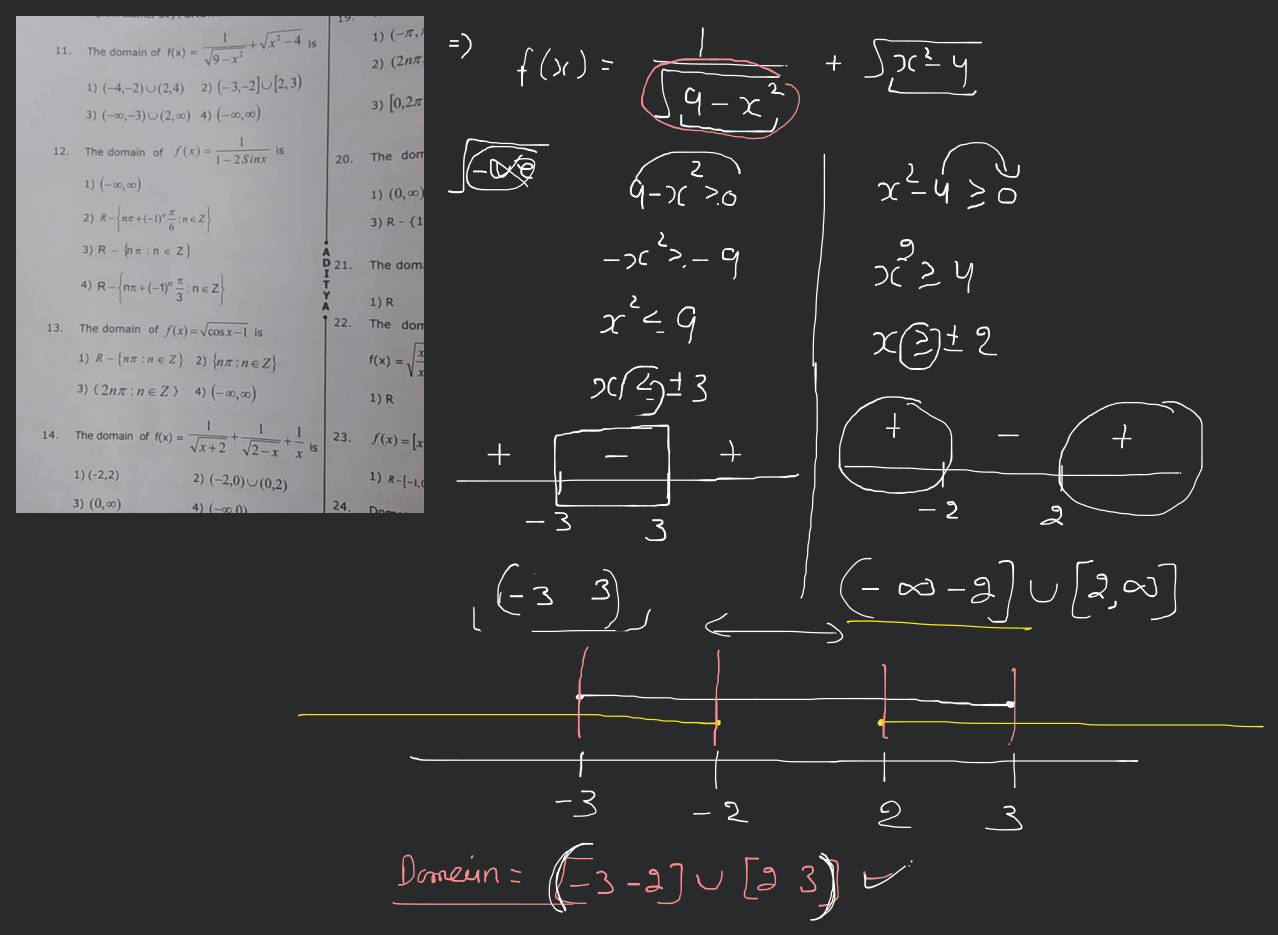 19.
11. The domain of f(x) = 1/√(9-x²) + √(x²-4) is
1) (-4,-2)∪(2,4) 2) (-3,-2]∪[2,3)
3) (-∞,-3)∪(2,∞) 4) (-∞,∞)
12. The domain of f(x) = 1/(1-2Sinx) is
1) (-∞,∞)
2) R-{nπ+(-1)ⁿ π/6 : n∈Z}
3) R - {nπ : n ∈ Z}
4) R-{nπ+(-1)ⁿ π/3 : n∈Z}
13. The domain of f(x)=√(cosx-1) is
1) R-{nπ : n∈Z} 2) {nπ : n∈Z}
3) {2nπ : n∈Z} 4) (-∞,∞)
14. The domain of f(x) = 1/√(x+2) + 1/√(2-x) + 1/x is
1) (-2,2) 2) (-2,0)∪(0,2)
3) (0,∞) 4) (-∞ 0)
ADITYA
1) (-π,
2) (2nπ
3) [0,2π
20. The dom
1) (0,∞)
3) R - {1
21. The dom
1) R
22. The dom
f(x) = √
1) R
23. f(x) = [x
1) R-[-1,
24.
=> f(x) = 1/√(9-x²) + √(x²-4)
√-ve
9-x²≥0
-x²≥-9
x²≤9
x≤±3
+ - +
-3 3
(-3 3)
x²-4≥0
x²≥4
x≥±2
+ - +
-2 2
(-∞ -2] ∪ [2,∞]
-3 -2 2 3
Domain = ([-3 -2] ∪ [2 3)]